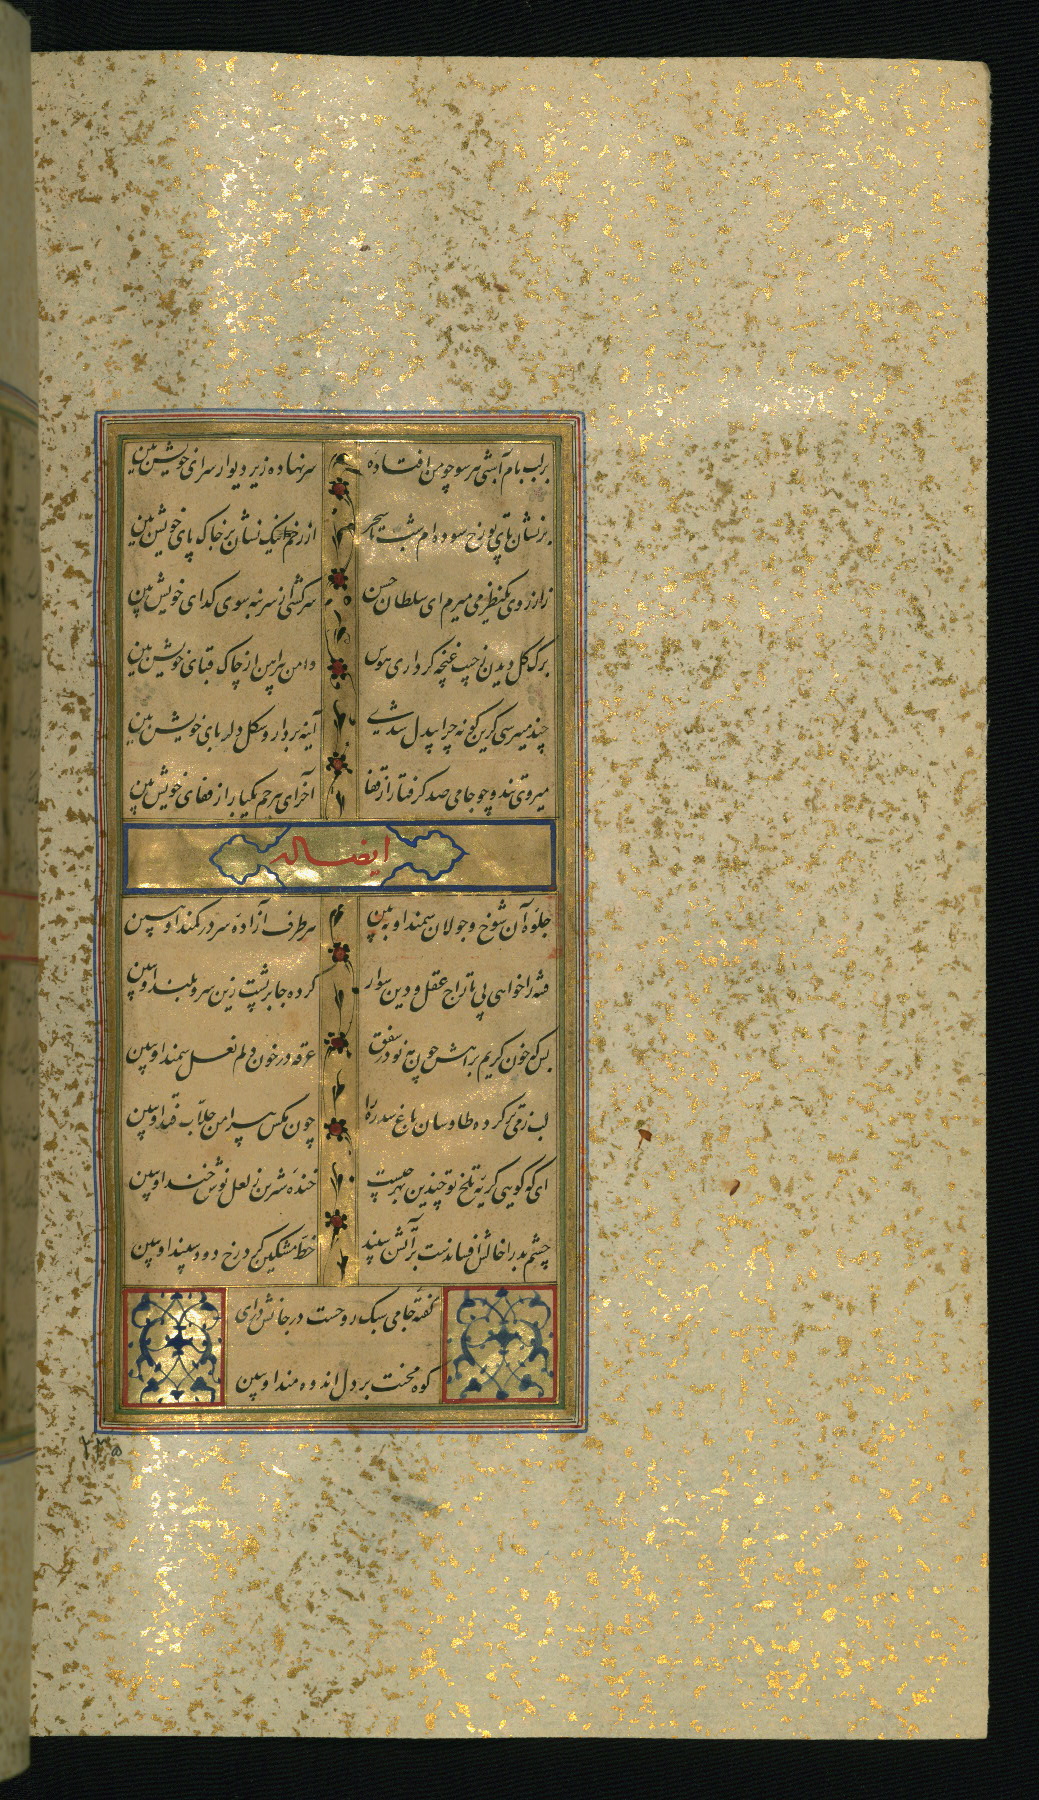 بر لب بام آ شبی هر سو چو من افتاده سر نهاده زیر دیوار سرای خویش بین
بر نشان پای تو رخ سوده‌ام شب تا سحر از رخم نک نشان بر خاک پای خویش بین
ز آرزوی یکنظر می میرم ای سلطان حسن سرکشی از سر نه سوی کدای خویش بین
برک کل دیدن ز جیب غنچه کر داری هوس دامن پیراهن از چاک قبای خویش بین
چند میپرسی کزین کونه چرا بیدل شدی آینه بردار و شکل دلربای خویش بین
میروی تند و چو جامی صد کرفتار از قفا آخر ای بیرحم یکبار از قفای خویش بین
ایضا له
جلوهٔ آن شوخ و جولان سمند او ببین هر طرف آزاده سر در کمند او ببین
فتنه را خواهی پی تاراج عقل و دین سوار کرده جا بر پشت زین سرو بلند او ببین
بس که خون کریم براهش چون نمود در شفق غرقه در خون دلم نعل سمند او ببین
لب ز می تر کرده طاوسان باغ سدره را چون مکس پیرامن جلاب قند او ببین
ای که کویی کریهٔ تلخ تو چندین بهر چیست خنده شیرین ز لعل نوش خند او ببین
چشم بد را خالش افشاندست بر آتش سپند خط مشکین کرد رخ دود سپند او ببین
کفته جامی سبک روحست در جانش درای
کوه محنت بر دل اندوه مند او ببین